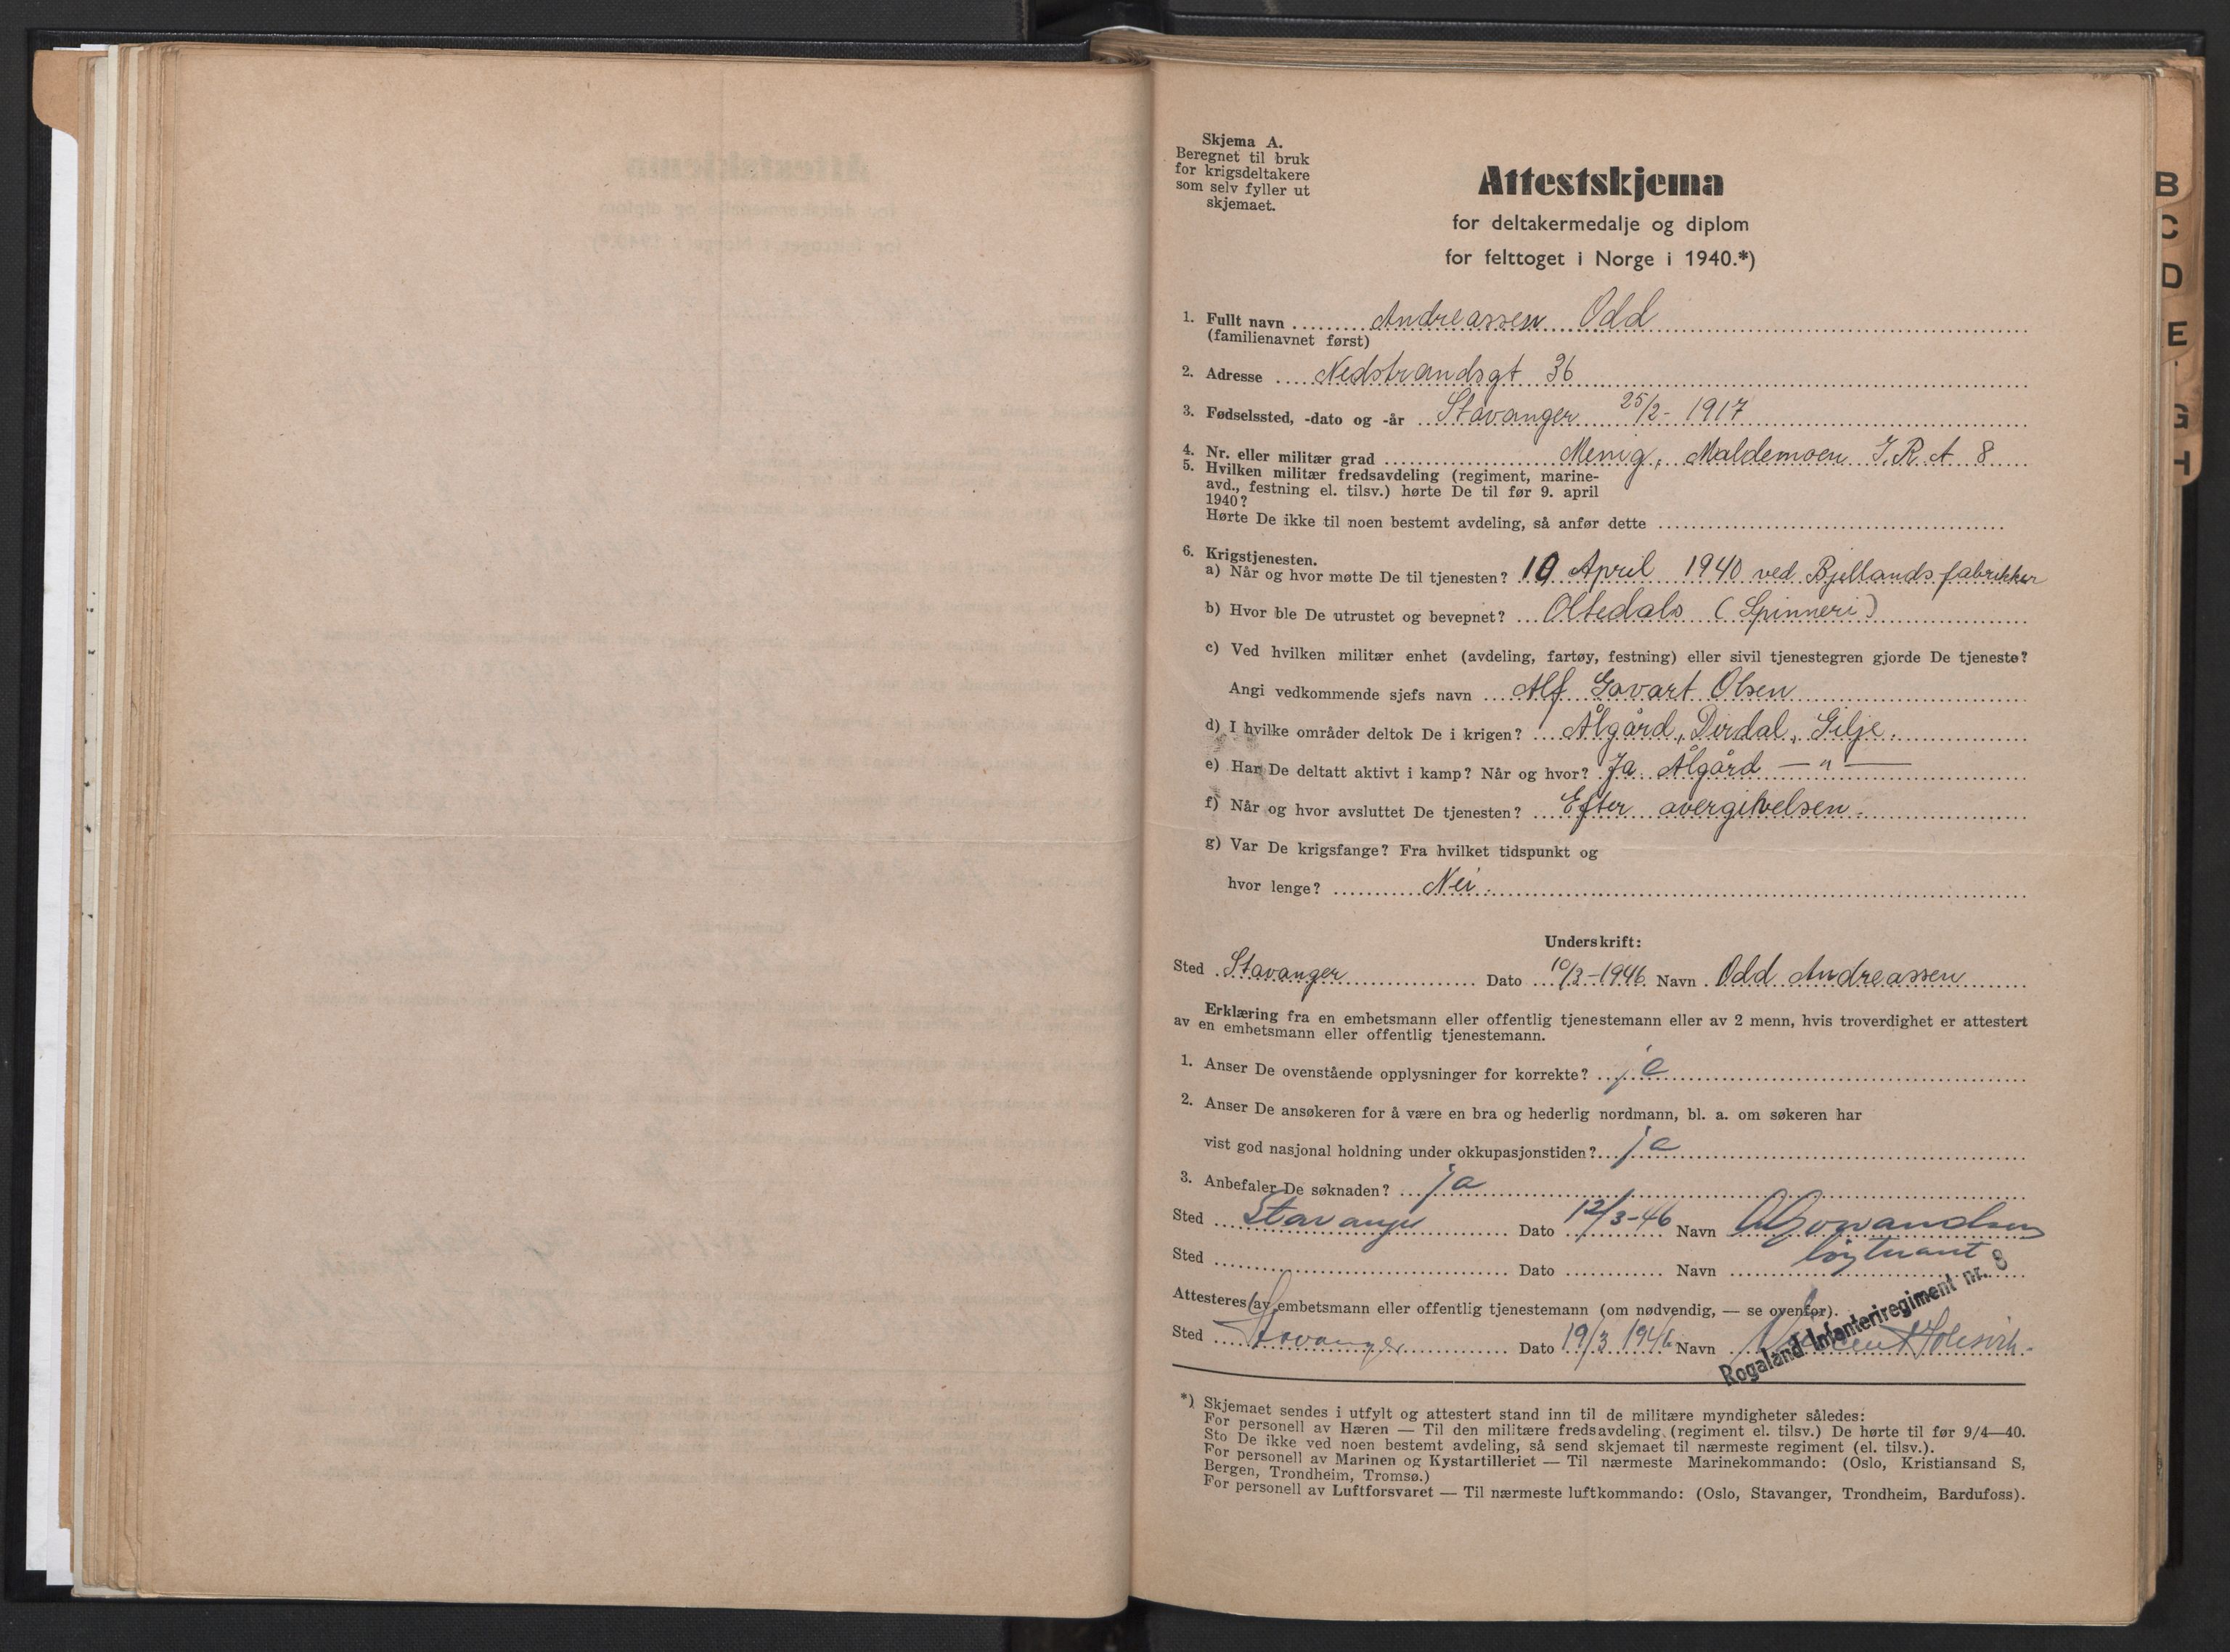 Skjema A.
Beregnet til bruk
for krigsdeltakere
som selv fyller ut
skjemaet.
Attestskjema
for deltakermedalje og diplom
for felttoget i Norge i 1940.*)
1. Fullt navn Andreassen Odd
(familienavnet først)
2. Adresse Nedstrandsgt 36
3. Fødselssted, -dato og -år Stavanger 25/2- 1917
4. Nr. eller militær grad Menig, Maldemoen I.R. A 8
5. Hvilken militær fredsavdeling (regiment, marine-
avd., festning el. tilsv.) hørte De til før 9. april
1940?
Hørte De ikke til noen bestemt avdeling, så anfør dette
6. Krigstjenesten.
a) Når og hvor møtte De til tjenesten? 10 April 1940 ved Bjellands fabrikker
b) Hvor ble De utrustet og bevepnet? Oltedals (Spinneri)
c) Ved hvilken militær enhet (avdeling, fartøy, festning) eller sivil tjenestegren gjorde De tjeneste?
Angi vedkommende sjefs navn Alf Gavart Olsen
d) I hvilke områder deltok De i krigen? Ålgård, Dirdal, Gilje.
e) Har De deltatt aktivt i kamp? Når og hvor? Ja. Ålgård — " —
f) Når og hvor avsluttet De tjenesten? Efter overgivelsen.
g) Var De krigsfange? Fra hvilket tidspunkt og
hvor lenge? Nei.
Underskrift:
Sted Stavanger Dato 10/3-1946 Navn Odd Andreassen
Erklæring fra en embetsmann eller offentlig tjenestemann eller av 2 menn, hvis troverdighet er attestert
av en embetsmann eller offentlig tjenestemann.
1. Anser De ovenstående opplysninger for korrekte? ja
2. Anser De ansøkeren for å være en bra og hederlig nordmann, bl. a. om søkeren har
vist god nasjonal holdning under okkupasjonstiden? ja
3. Anbefaler De søknaden? ja
Sted Stavanger Dato 12/3-46 Navn
løytnant
Sted Dato Navn
Rogaland Infanteriregiment nr. 8
Attesteres av embetsmann eller offentlig tjenestemann (om nødvendig, — se ovenfor).
Sted Stavanger Dato 19/3 1946 Navn
*) Skjemaet sendes i utfylt og attestert stand inn til de militære myndigheter således:
For personell av Hæren — Til den militære fredsavdeling (regiment el. tilsv.) De hørte til før 9/4—40.
Sto De ikke ved noen bestemt avdeling, så send skjemaet til nærmeste regiment (el. tilsv.).
For personell av Marinen og Kystartilleriet — Til nærmeste Marinekommando: (Oslo, Kristiansand S,
Bergen, Trondheim, Tromsø.)
For personell av Luftforsvaret — Til nærmeste luftkommando: (Oslo, Stavanger, Trondheim, Bardufoss).
B
C
D
E
G